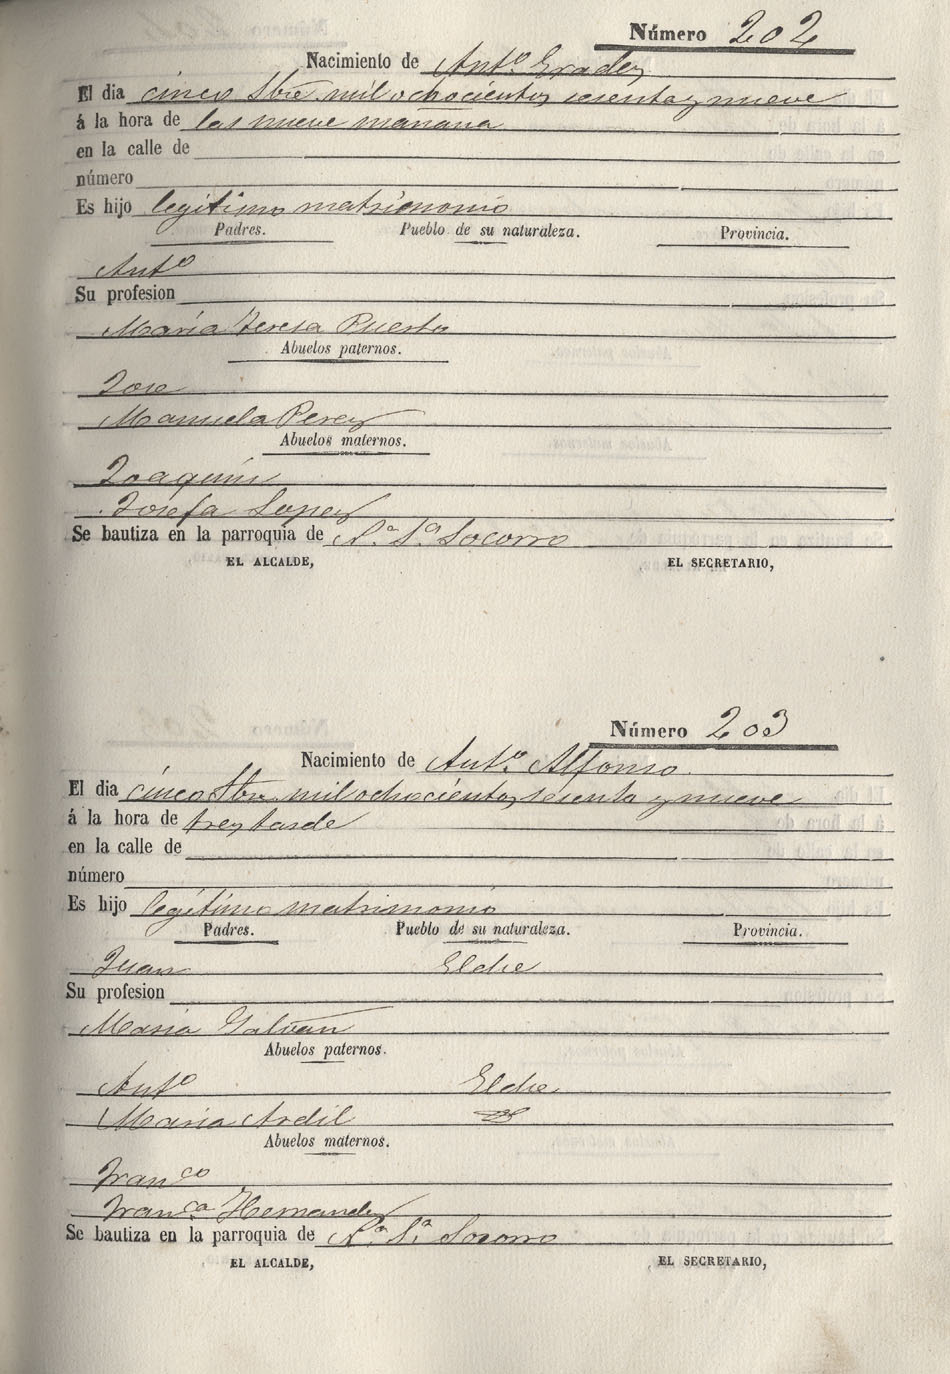 Número 202
Nacimiento de Antº Grades
El dia cinco Sbre mil ochocientos sesenta y nueve
á la hora de las nueve mañana
en la calle de
número
Es hijo legitimo matrimonio
Padres. Pueblo de su naturaleza. Provincia.
Antº
Su profesion
Maria Teresa Puerto
Abuelos paternos.
Jose
Manuela Perez
Abuelos maternos.
Joaquin
Josefa Lopez
Se bautiza en la parroquia de Nª Sª Socorro
EL ALCALDE, EL SECRETARIO,
Número 203
Nacimiento de Antº Alfonso
El dia cinco Sbre mil ochocientos sesenta y nueve
á la hora de tres tarde
en la calle de
número
Es hijo legitimo matrimonio
Padres. Pueblo de su naturaleza. Provincia.
Juan Elche
Su profesion
Maria Galvan
Abuelos paternos.
Antº Elche
Maria Ardil
Abuelos maternos.
Franco
Franca Hernandez
Se bautiza en la parroquia de Nª Sª Socorro
EL ALCALDE, EL SECRETARIO,